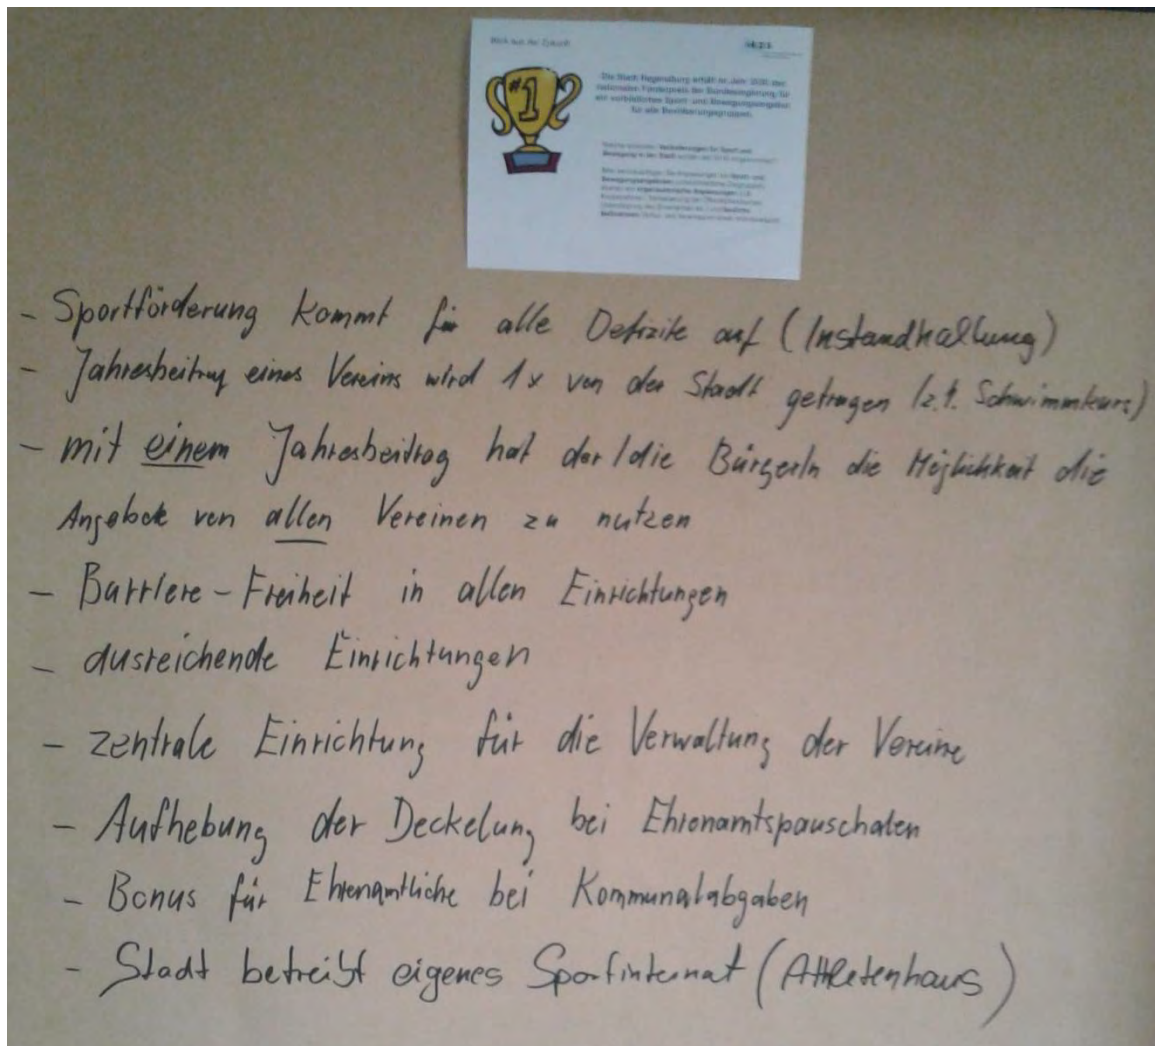 Blick aus der Zukunft
#1
Die Stadt Regensburg erhält im Jahr 2030 den
nationalen Förderpreis der Bundesregierung für
ein vorbildliches Sport- und Bewegungsangebot
für alle Bevölkerungsgruppen.
- Sportförderung kommt für alle Defizite auf (Instandhaltung)
- Jahresbeitrag eines Vereins wird 1x von der Stadt getragen (z.B. Schwimmkurs)
- mit einem Jahresbeitrag hat der/die BürgerIn die Möglichkeit die
Angebote von allen Vereinen zu nutzen
- Barriere-Freiheit in allen Einrichtungen
- ausreichende Einrichtungen
- zentrale Einrichtung für die Verwaltung der Vereine
- Aufhebung der Deckelung bei Ehrenamtspauschalen
- Bonus für Ehrenamtliche bei Kommunalabgaben
- Stadt betreibt eigenes Sportinternat (Athletenhaus)